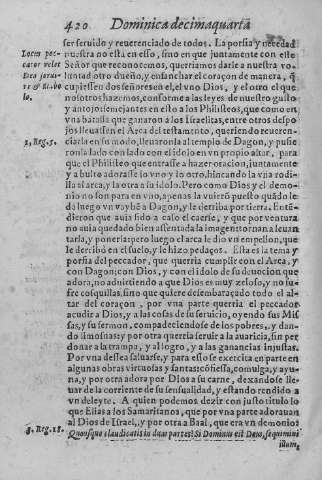 420 Dominica decimaquarta
ser seruido y reuerenciado de todos. La porfia y necedad
Locus pec-
nuestra no està en esso, sino en que juntamente con este
cator velet
Señor que reconocemos, querriamos darle a nuestra vo-
Deo serui-
luntad otro dueño, y ensanchar el coraçon de manera, q̃
re & diabo
cupiessen dos señores en el, el vno Dios, y el otro el que
lo.
nosotros hazemos, conforme a las leyes de nuestro gusto
y antojo semejantes en esto a los Philisteos, que como en
vna batalla que ganaron a los Israelitas, entre otros despo
jos lleuassen el Arca del testamento, queriendo reueren-
1, Reg. 5.
ciarla en su modo, lleuaronla al templo de Dagon, y pusie
ron la lado con lado con el idolo en vn propio altar, para
que el Philisteo que entrasse a hazer oracion, juntamente
y a bulto adorasse lo vno y lo otro, hincando la vna rodi-
lla al arca, y la otra a su idolo. Pero como Dios y el demo-
nio no son para en vno, apenas la vuierõ puesto quãdo le
da luego vn vayb̃ a Dagon, y le derriba por tierra. Enté-
dieron que auia sido a caso el caerse, y que por ventura
no auia quedado bien assentada la imagen: tornan a leuan
tarla, y ponerla: pero luego el arca le dio vn empellon, que
le derribò en el suelo, y le hizo pedaços. Essa es la tema y
porfia del peccador, que querria cumplir con el Arca, y
con Dagon; con Dios, y con el idolo de su deuocion que
adora, no aduirtiendo a que Dios es muy zeloso, y no su-
fre cosquillas, sino que quiere desimbaraçado todo el al-
tar del coraçon, por vna parte querria el pecador
acudir a Dios, y a las cosas de su seruicio, oyendo sus Mis
sas, y su sermon, compadeciendose de los pobres, y dan-
do limosnas: y por otra querria seruir a la auaricia, sin per
donar a la trampa, y al logro, y a las ganancias injustas.
Por vna dessea saluarse, y para esso se exercita en parte en
algunas obras virtuosas y santas: confiessa, comulga, y ayu-
na, y por otra adora por Dios a su carne, dexandose lle-
uar de la corriente de su sensualidad, y estando rendido a
vn deleyte. A quien podemos dezir con justo titulo lo
que Elias a los Samaritanos, que por vna parte adorauan
al Dios de Israel, y por otra a Baal, que era vn demonio:
3. Reg. 18.
Quousque claudicatis in duas partes? Si Dominus est Deus, sequimini
illum,